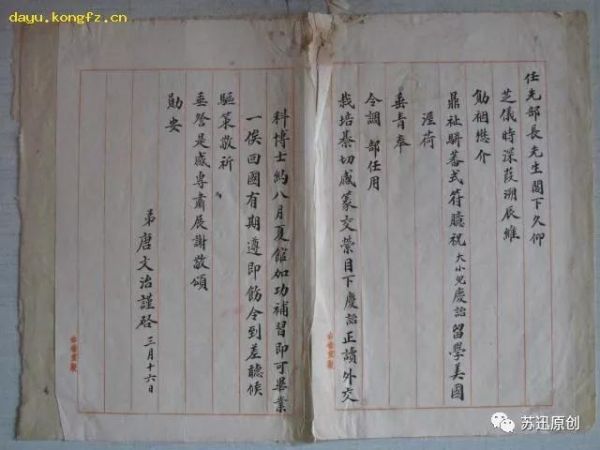 dayu.kongfz.cn
任先部長先生閣下久仰
芝儀時深葭溯辰維
勛祺懋介
鼎祉駢蕃式符臆祝大小兒慶詒留學美國
渥荷
垂青奉
令調 部任用
栽培綦切感蒙交榮目下慶詒正讀外交
科博士約八月夏館加功補習即可畢業
一俟回國有期遵即飭令到差聽候
驅策敬祈
垂詧是感專肅展謝敬頌
勛安
弟唐文治謹啓 三月十六日
苏迅原创